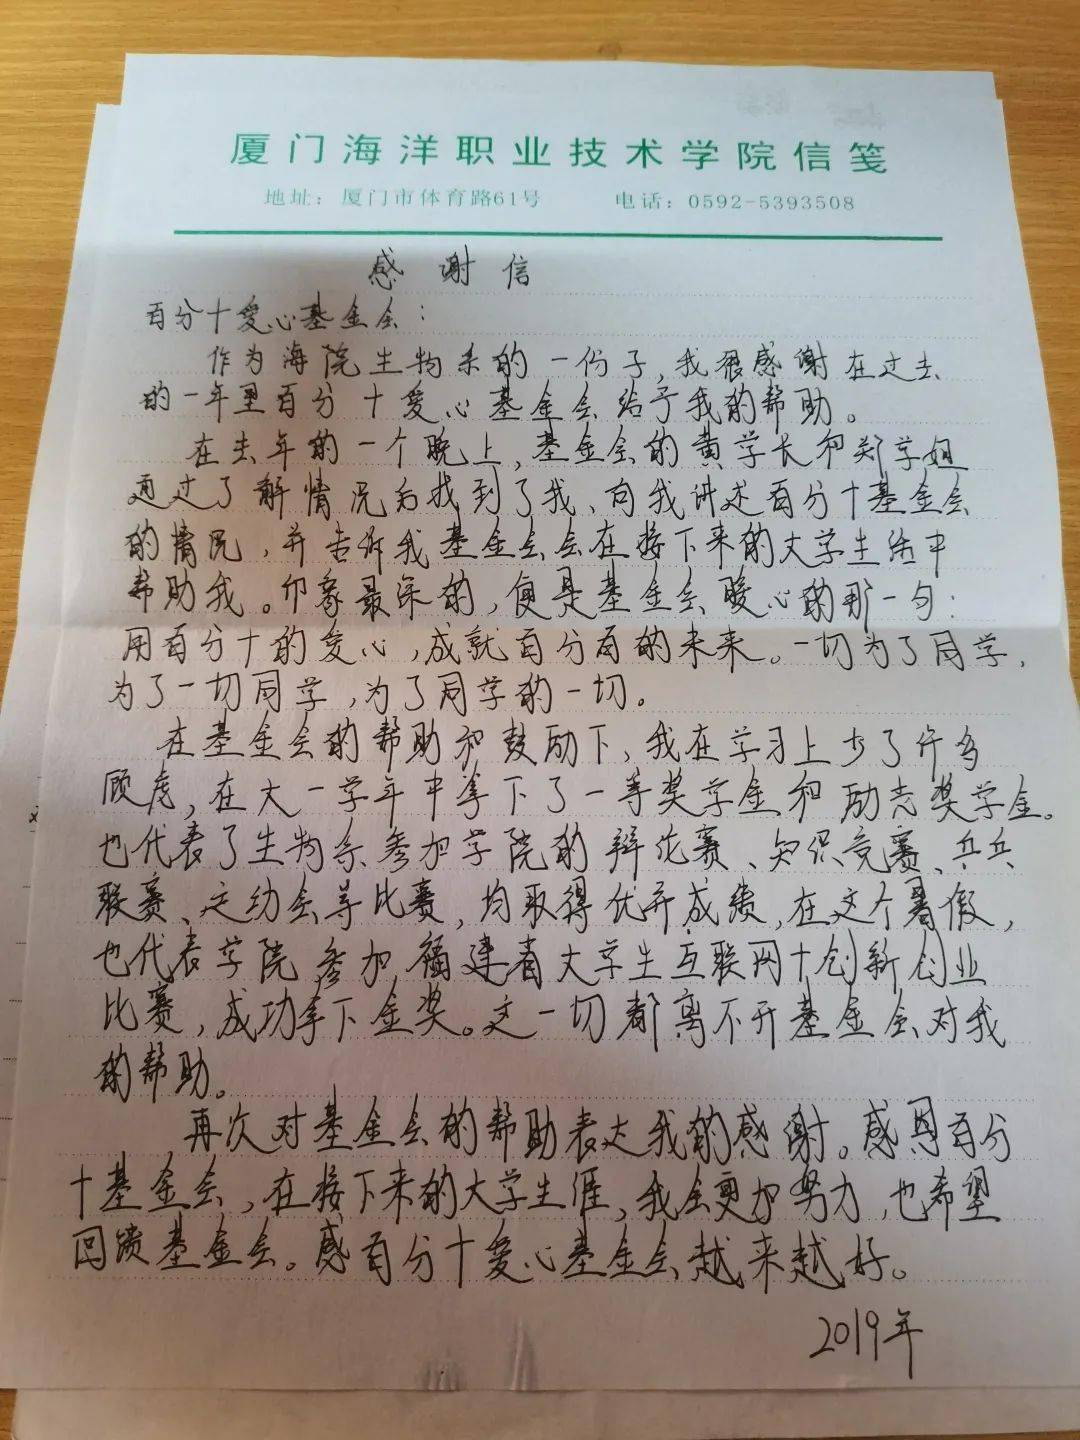 厦门海洋职业技术学院信笺
地址：厦门市体育路61号 电话：0592-5393508
感谢信
百分十爱心基金会：
作为海院生物系的一份子，我很感谢在过去
的一年里百分十爱心基金会给予我的帮助。
在去年的一个晚上，基金会的黄学长和郑学姐
通过了解情况后找到了我、向我讲述百分十基金会
的情况，并告诉我基金会会在接下来的大学生活中
帮助我。印象最深的，便是基金会暖心的那一句：
用百分十的爱心，成就百分百的未来。一切为了同学，
为了一切同学，为了同学的一切。
在基金会的帮助和鼓励下，我在学习上少了许多
顾虑，在大一学年中拿下了一等奖学金和励志奖学金。
也代表了生物系参加学院的辩论赛、知识竞赛、乒乓
联赛、运动会等比赛，均取得优异成绩，在这个暑假，
也代表学院参加福建省大学生互联网十创新创业
比赛，成功拿下金奖。这一切都离不开基金会对我
的帮助。
再次对基金会的帮助表达我的感谢。感恩百分
十基金会，在接下来的大学生涯，我会更加努力，也希望
回馈基金会。愿百分十爱心基金会越来越好。
2019年